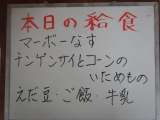 本日の給食
マーボーなす
チンゲンサイとコーンの
いためもの
えだ豆・ご飯・牛乳